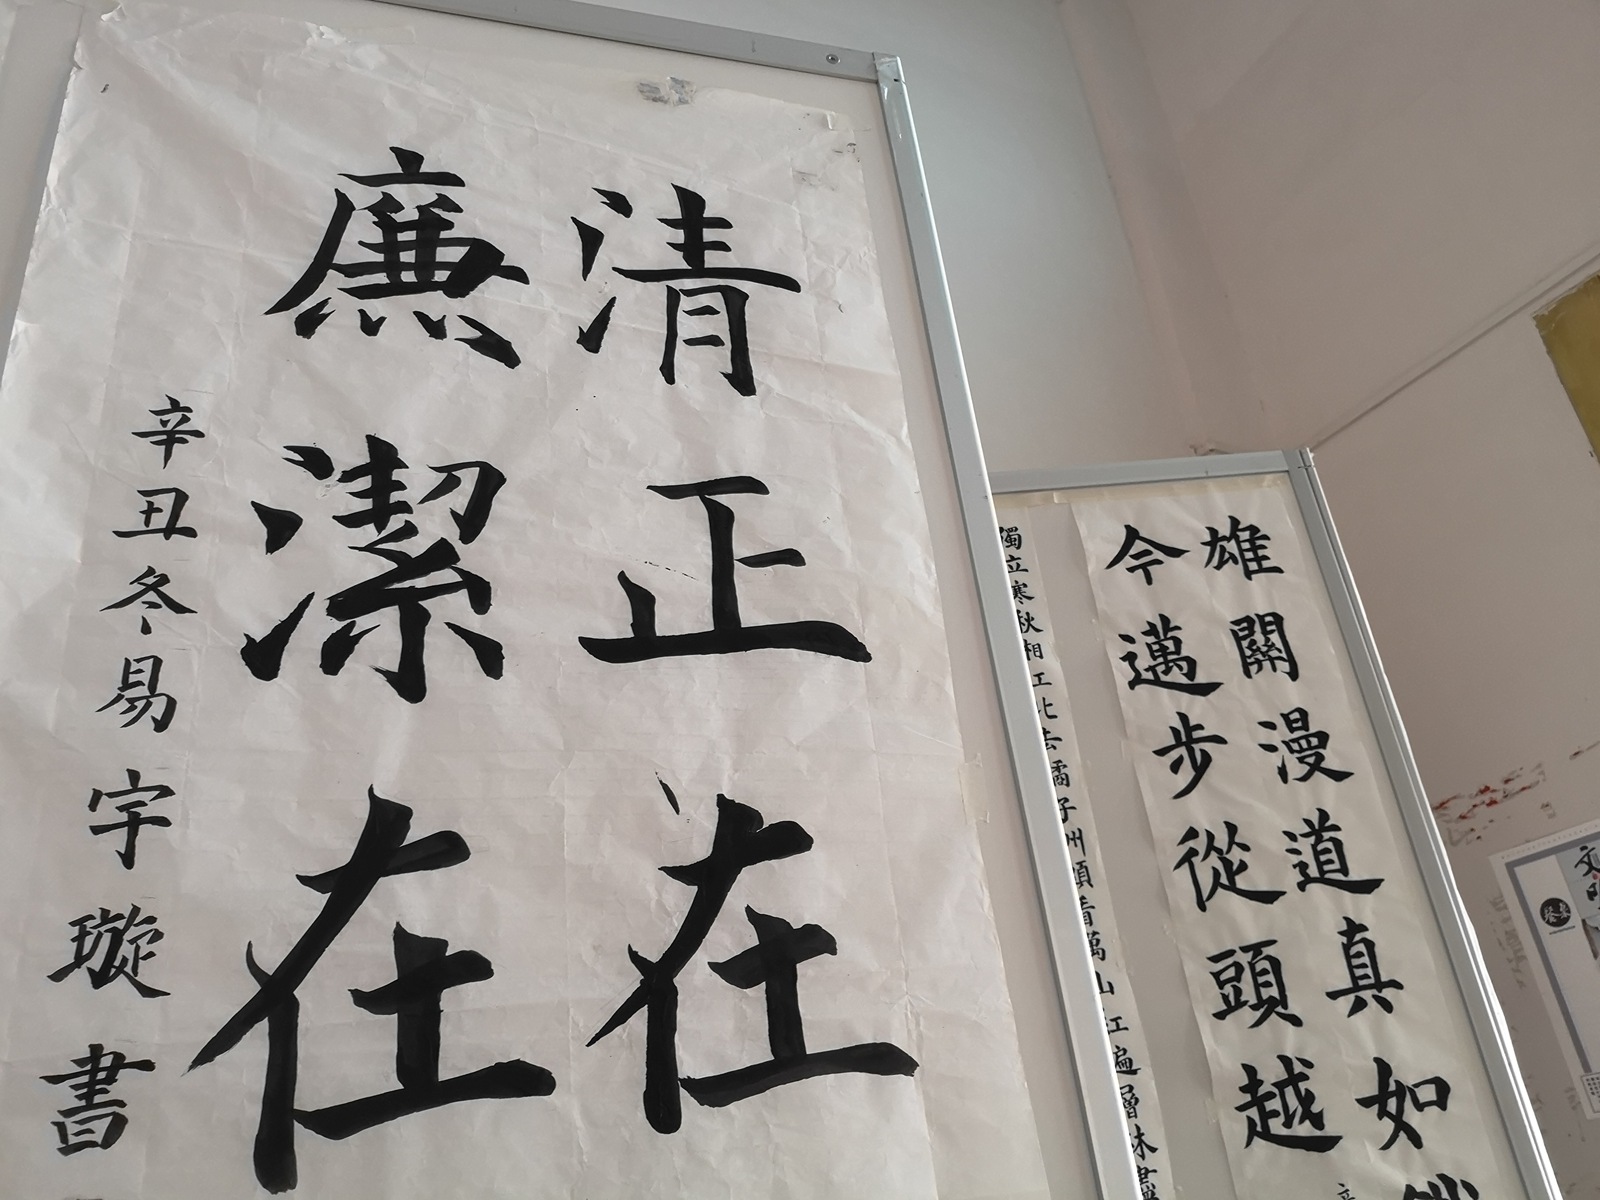 清正在
廉潔在
辛丑冬易宇璇書
雄關漫道真如鐵
今邁步從頭越
獨立寒秋湘江北去橘子州頭看萬山紅遍層林盡